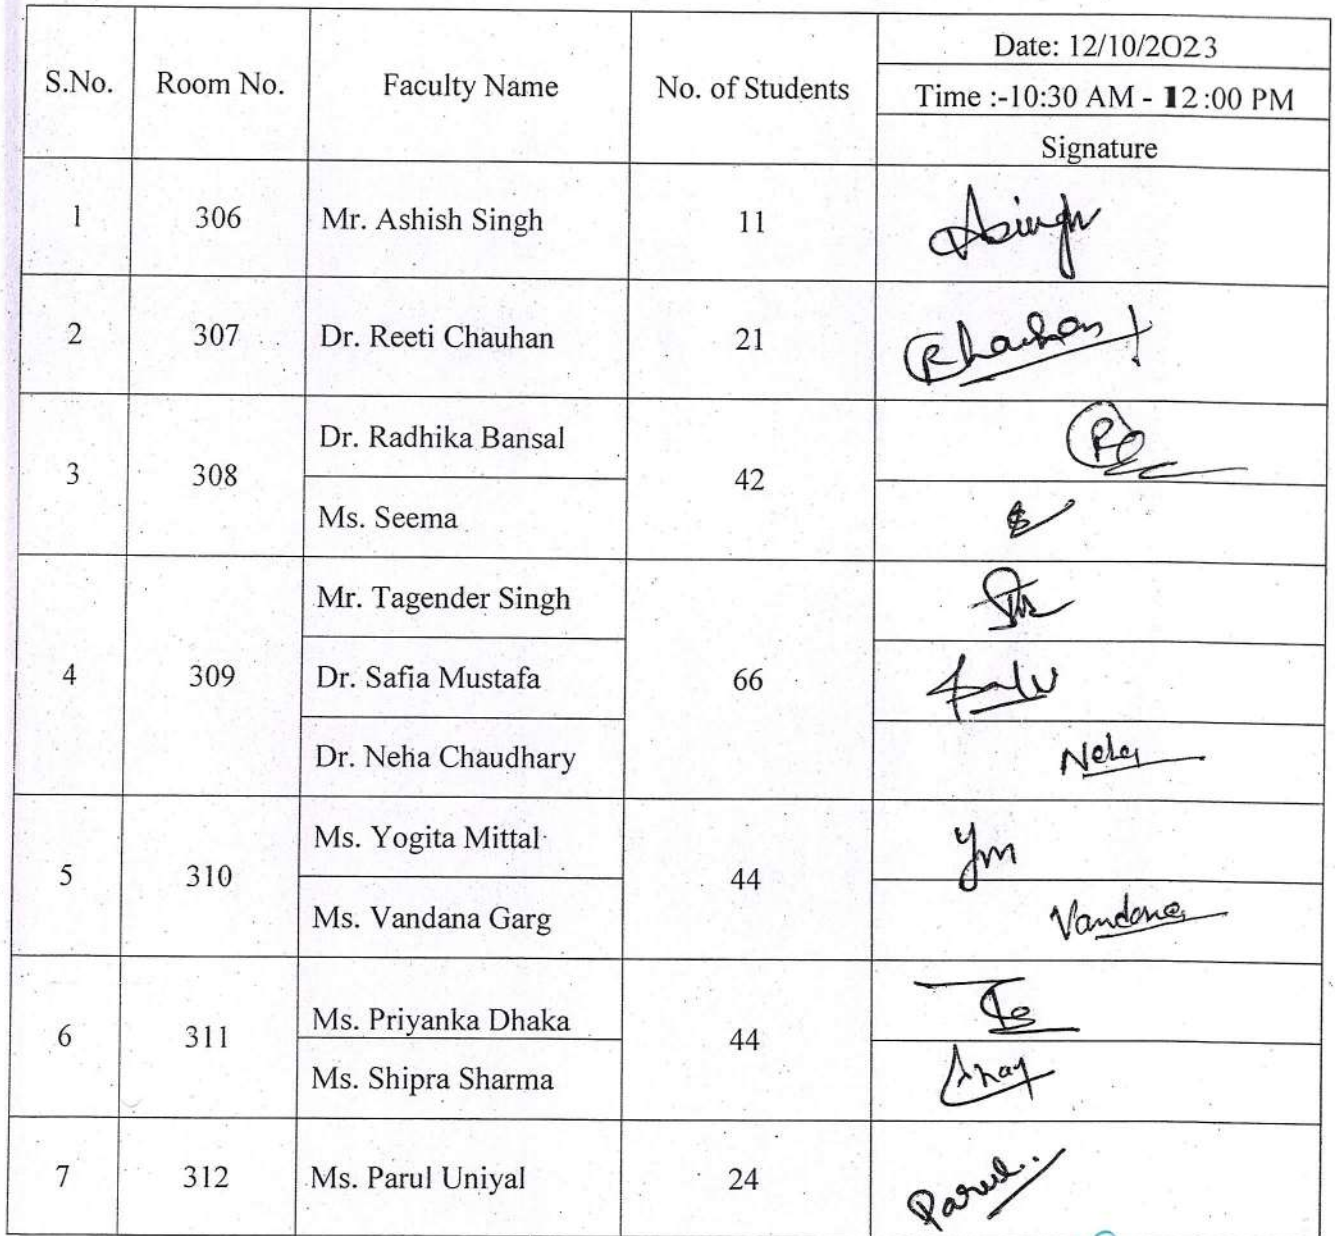 S.No. Room No. Faculty Name No. of Students Date: 12/10/2023
Time :-10:30 AM - 12:00 PM
Signature
1 306 Mr. Ashish Singh 11 Asingh
2 307 Dr. Reeti Chauhan 21 RChauhan
3 308 Dr. Radhika Bansal 42
Ms. Seema
4 309 Mr. Tagender Singh 66
Dr. Safia Mustafa
Dr. Neha Chaudhary Neha
5 310 Ms. Yogita Mittal 44 Ym
Ms. Vandana Garg Vandana
6 311 Ms. Priyanka Dhaka 44
Ms. Shipra Sharma
7 312 Ms. Parul Uniyal 24 Parul